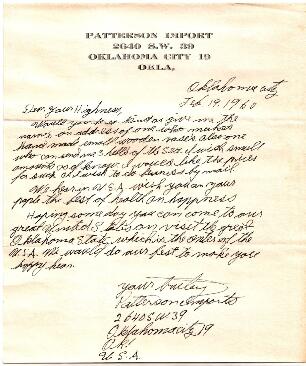 PATTERSON IMPORT
2640 S.W. 39
OKLAHOMA CITY 19
OKLA.
Oklahoma city
Feb 19, 1960
Dear Your Highness,
Would you be so kind as give me the
name an address of one who makes
hand made small wooden
who can send me
amounts I would like the prices
for such I wish to do business by mail
We here in U.S.A. wish you an your
people the best of health an happiness
Hoping some day you can come to our
great United States an visit the great
Oklahoma State which is the center of the
U.S.A. We would do our best to make you
happy here.
Your truley
Patterson Imports
2640 SW 39
Oklahoma city 19
Ok!
U.S.A